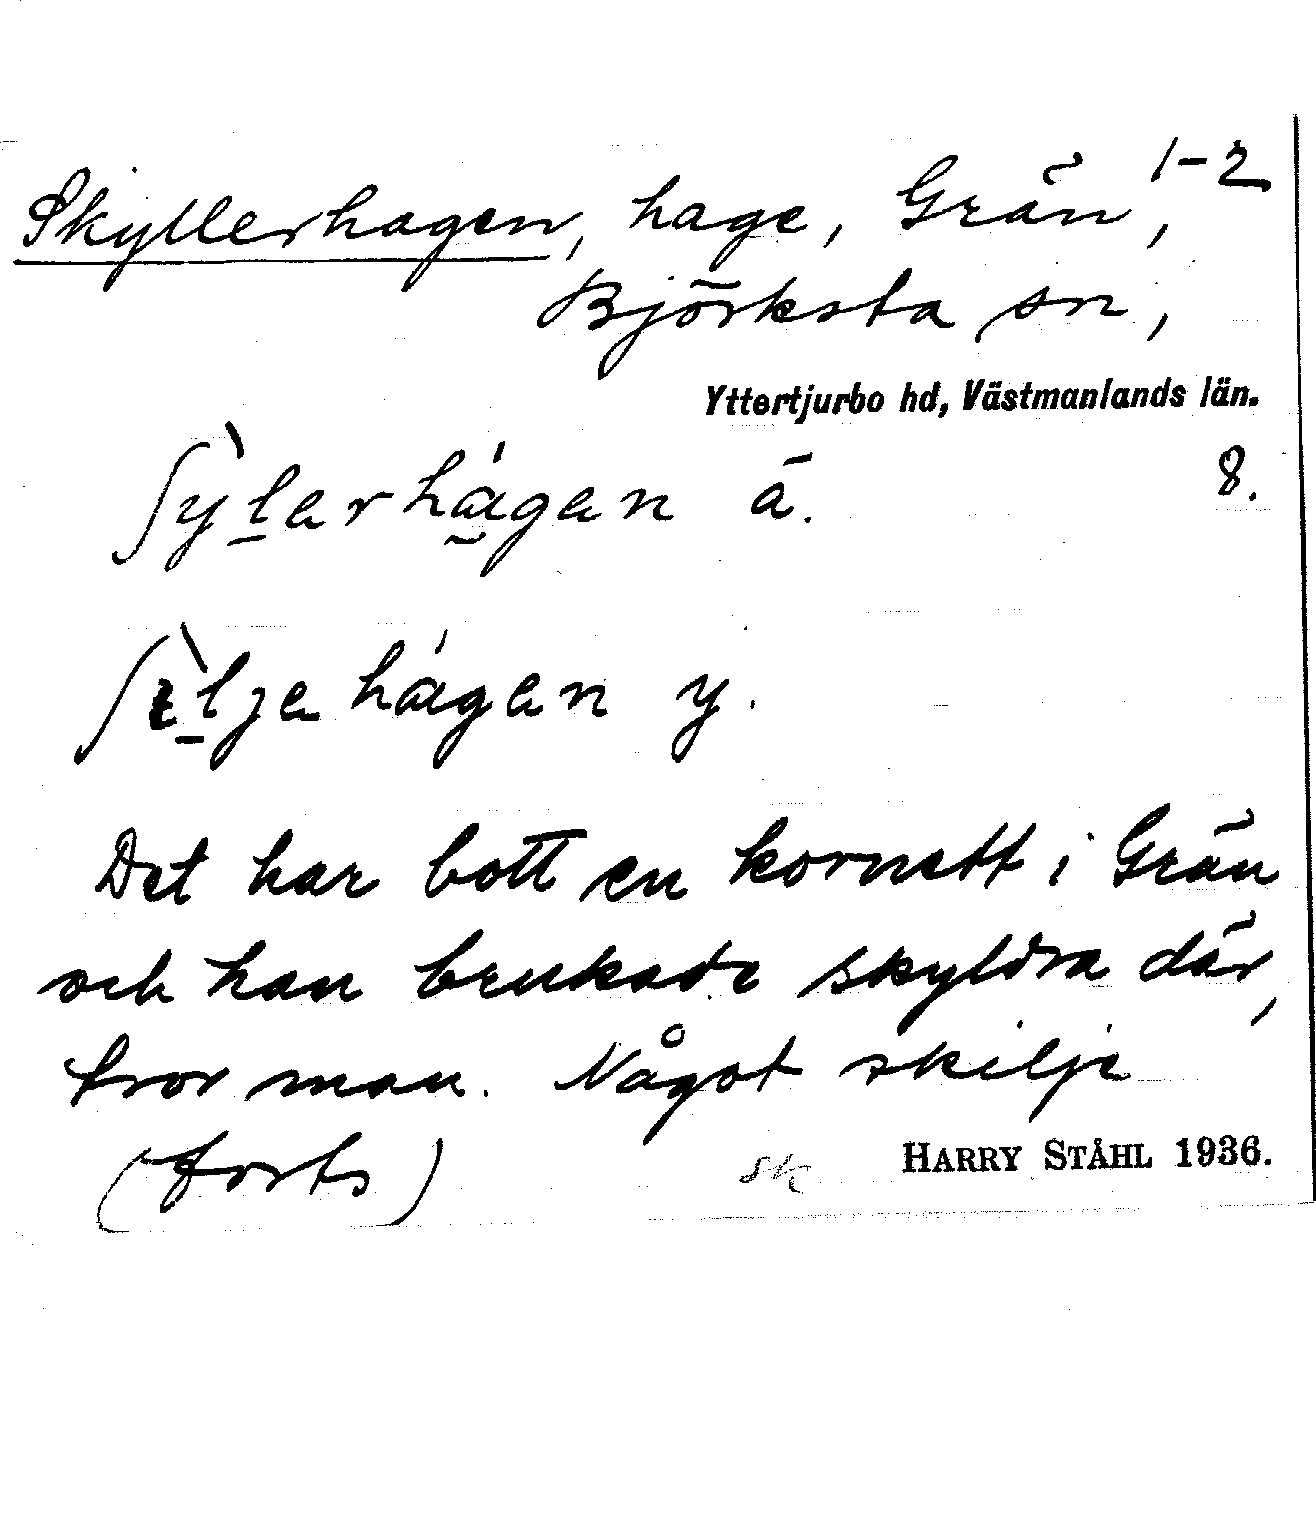 Skyllerhagen, hage, Grän, 1-2
Björksta sn,
Yttertjurbo hd, Västmanlands län.
ʃỳlerhágen ä. 8.
ʃìljehágen y.
Det har bott en kornett i Grän
och han brukade skyldra där,
tror man. Något skilje
(forts) sk HARRY STÅHL 1936.